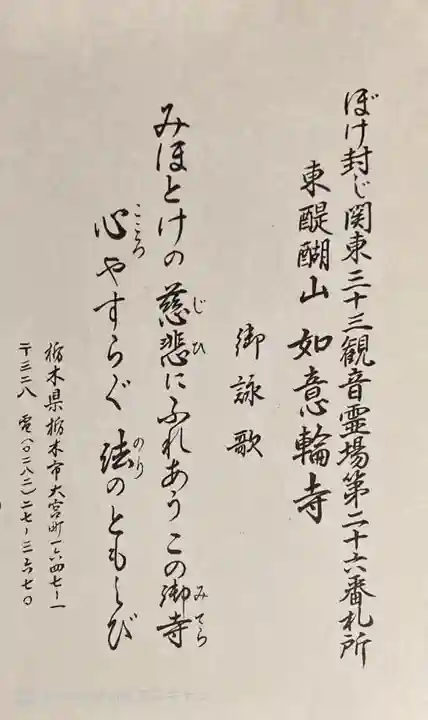 ぼけ封じ関東三十三観音霊場第二十六番札所
東醍醐山 如意輪寺
御詠歌
みほとけの慈悲にふれあうこの御寺
じひ
みてら
心やすらぐ法のともしび
こころ
のり
栃木県栃木市大宮町一六四七ー一
〒三二八 電(〇二八二)二七ー三六七〇